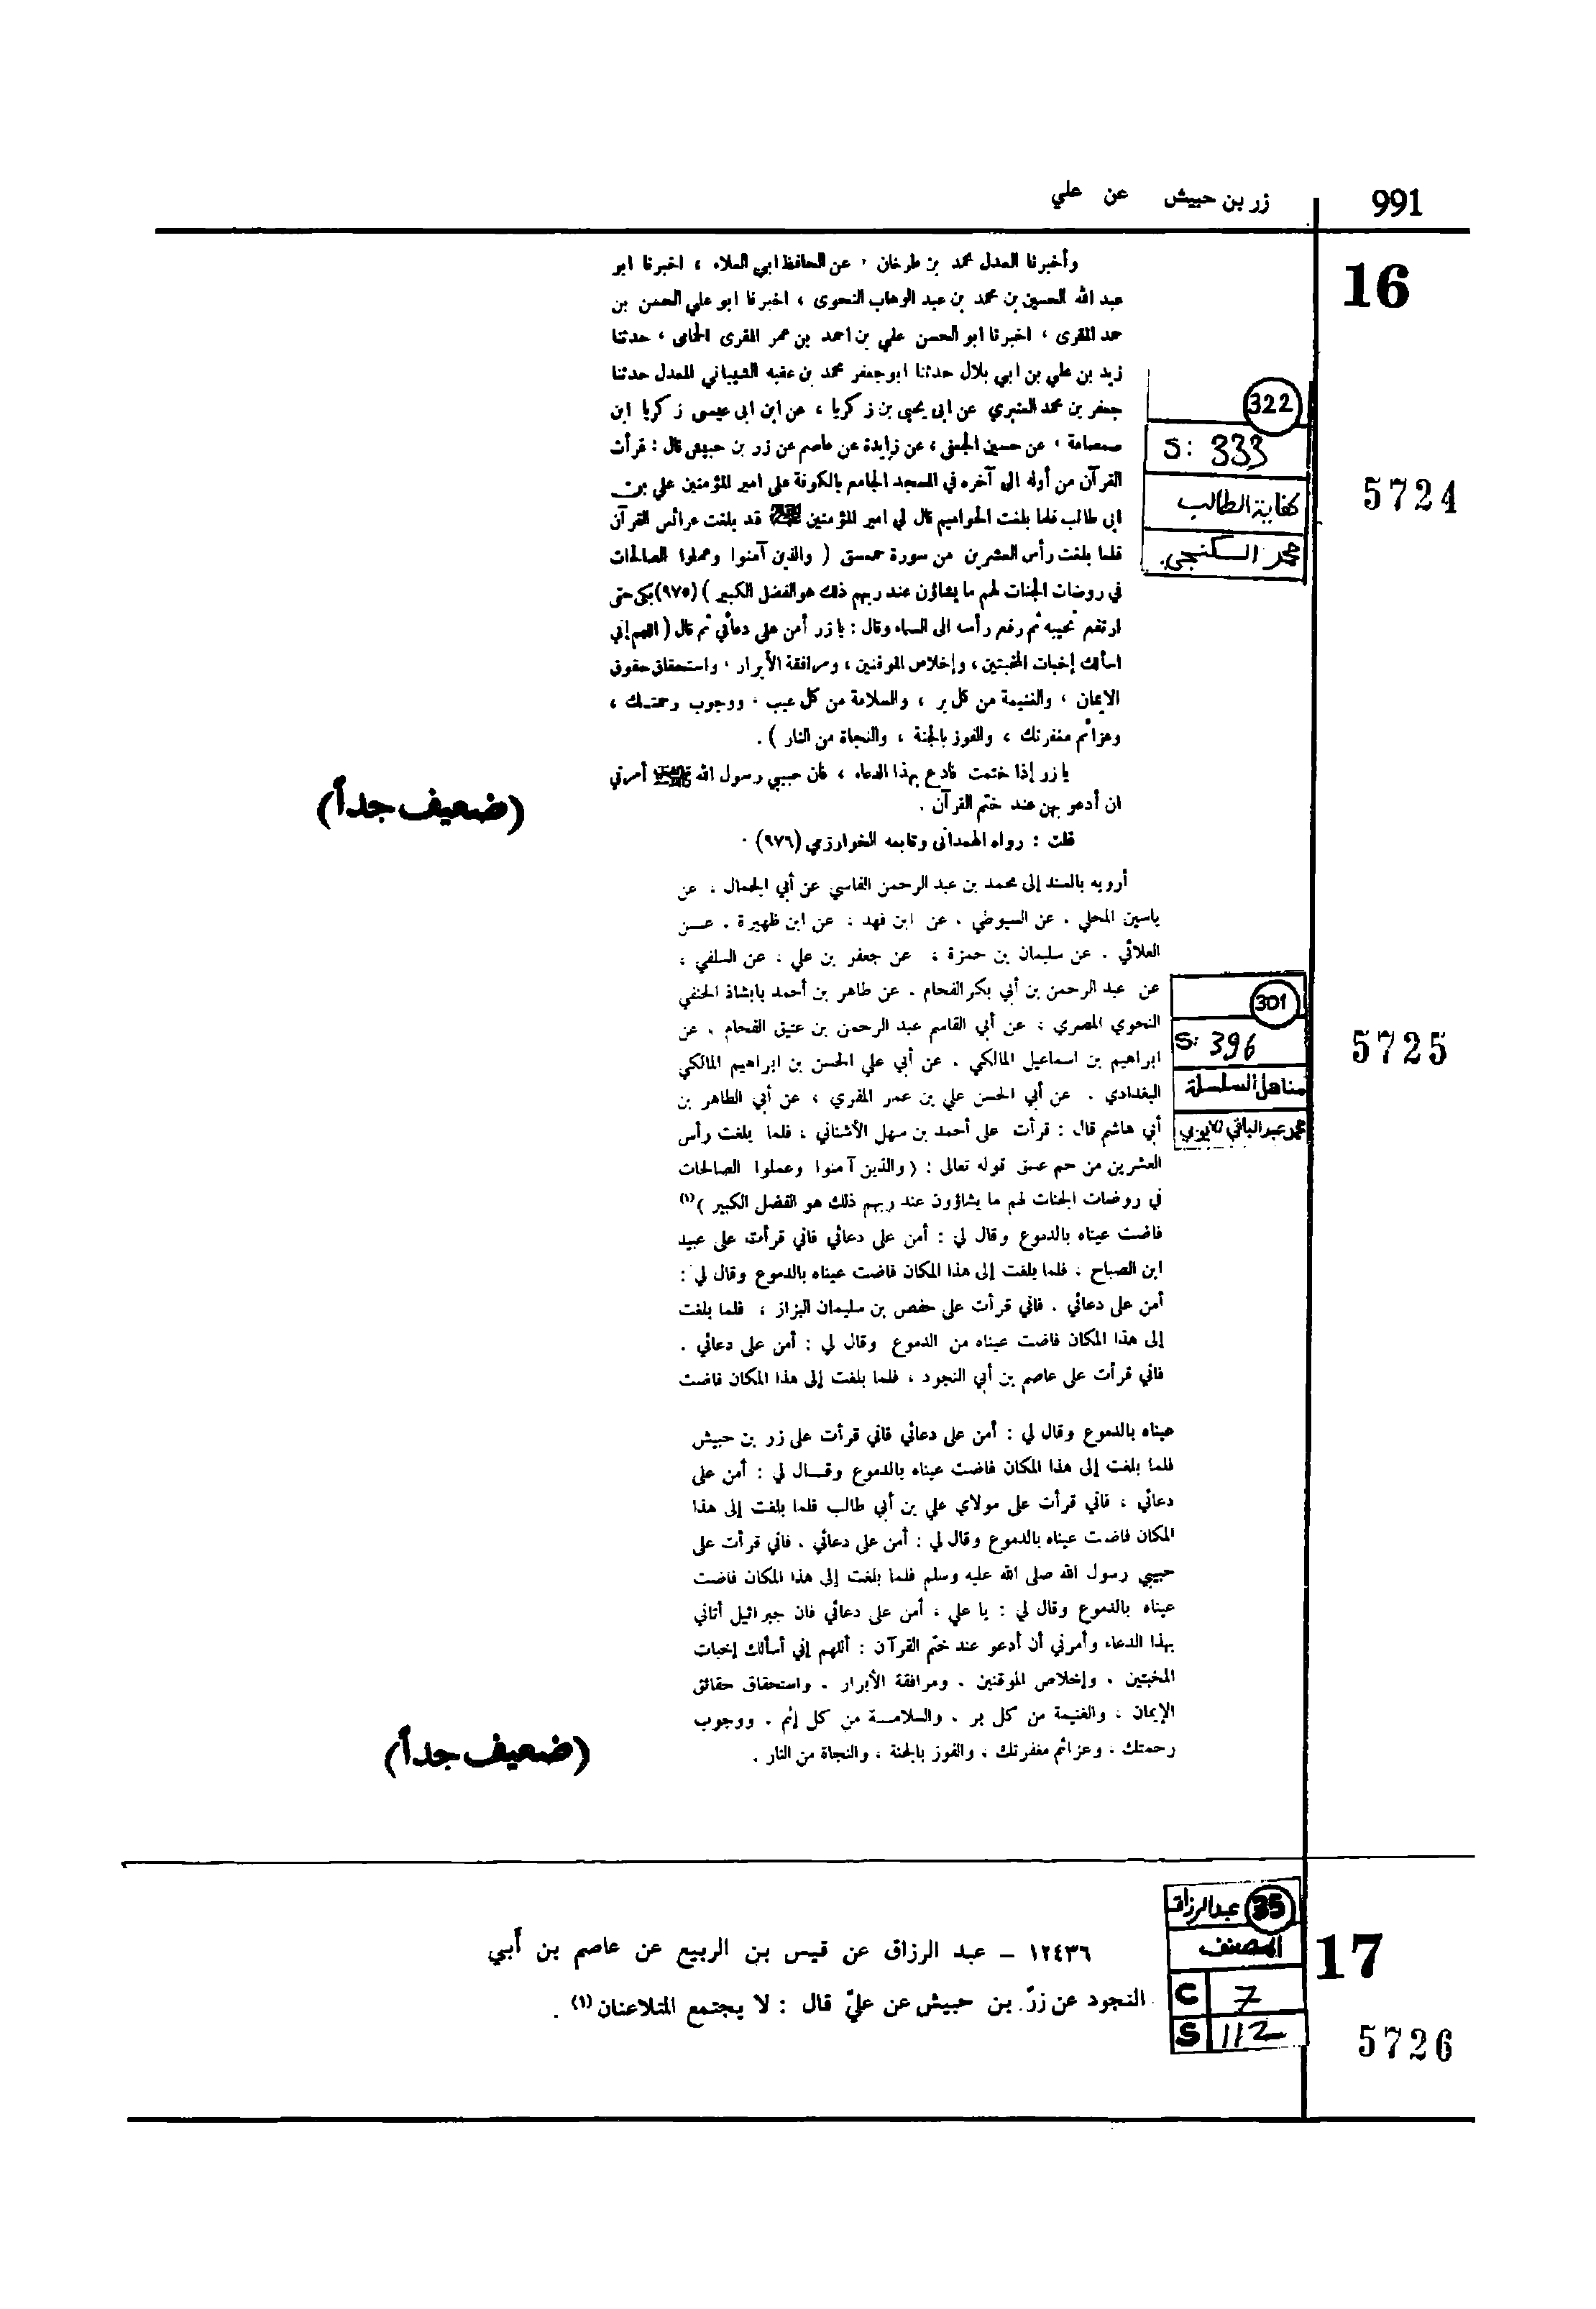 زر بن حبيش عن علي
991
16
وأخبرنا العدل محمد بن طرخان ، عن الحافظ ابي العلاء ، اخبرنا ابو
عبد الله الحسين بن محمد بن عبد الوهاب النحوى ، اخبرنا ابو علي الحسن بن
حمد المقرى ، اخبرنا ابو الحسن علي بن احمد بن عمر المقرى الحمامى ، حدثنا
زيد بن علي بن ابي بلال حدثنا ابو جعفر محمد بن عقبه الشيباني المعدل حدثنا
جعفر بن محمد العنبري عن ابى يحيى بن زكريا ، عن ابن ابى عيسى زكريا ابن
صمصامة ، عن حسين الجعفى ، عن زايدة عن عاصم عن زر بن حبيش قال : قرأت
القرآن من أوله الى آخره في المسجد الجامع بالكوفة على امير المؤمنين علي بن
ابى طالب فلما بلغت الحواميم قال لي امير المؤمنين قد بلغت عرائس القرآن
فلما بلغت رأس العشرين من سورة حمعسق ( والذين آمنوا وعملوا الصالحات
في روضات الجنات لهم ما يشاؤن عند ربهم ذلك هو الفضل الكبير ) (٩٧٥) بكى حتى
ارتفع نحيبه ثم رفع رأسه الى السماء وقال : يا زر أمن على دعائي ثم قال ( اللهم إني
اسألك إخبات المخبتين ، وإخلاص الموقنين ، ومرافقة الأبرار ، واستحقاق حقوق
الايمان ، والغنيمة من كل بر ، والسلامة من كل عيب ، ووجوب رحمتك ،
وعزائم مغفرتك ، والفوز بالجنة ، والنجاة من النار ) .
يا زر إذا ختمت فادع بهذا الدعاء ، فان حبيبي رسول الله أمرني
ان أدعو بهن عند ختم القرآن .
قلت : رواه الهمدانى وتابعه الخوارزمي (٩٧٦) .
(ضعيف جداً)
322
S: 333
كفاية الطالب
محمد الكنجي
5724
أرويه بالسند إلى محمد بن عبد الرحمن الفاسي عن أبي الجمال ، عن
ياسين المحلي . عن السيوطي . عن ابن فهد ، عن ابن ظهيرة . عن
العلائي . عن سليمان بن حمزة ، عن جعفر بن علي ، عن السلفي ،
عن عبد الرحمن بن أبي بكر الفحام . عن طاهر بن أحمد بابشاذ الحنفي
النحوي المصري ، عن أبي القاسم عبد الرحمن بن عتيق الفحام . عن
ابراهيم بن اسماعيل المالكي . عن أبي علي الحسن بن ابراهيم المالكي
البغدادي . عن أبي الحسن علي بن عمر المقري ، عن أبي الطاهر بن
أبي هاشم قال : قرأت على أحمد بن سهل الأشناني ، فلما بلغت رأس
العشرين من حم عسق قوله تعالى : ( والذين آمنوا وعملوا الصالحات
في روضات الجنات لهم ما يشاؤون عند ربهم ذلك هو الفضل الكبير )(١)
فاضت عيناه بالدموع وقال لي : أمن على دعائي فاني قرأت على عبيد
ابن الصباح ، فلما بلغت إلى هذا المكان فاضت عيناه بالدموع وقال لي :
أمن على دعائي . فاني قرأت على حفص بن سليمان البزاز ، فلما بلغت
إلى هذا المكان فاضت عيناه من الدموع وقال لي : أمن على دعائي .
فاني قرأت على عاصم بن أبي النجود ، فلما بلغت إلى هذا المكان فاضت
عيناه بالدموع وقال لي : أمن على دعائي فاني قرأت على زر بن حبيش
فلما بلغت إلى هذا المكان فاضت عيناه بالدموع وقال لي : أمن على
دعائي ، فاني قرأت على مولاي علي بن أبي طالب فلما بلغت إلى هذا
المكان فاضت عيناه بالدموع وقال لي : أمن على دعائي . فاني قرأت على
حبيبي رسول الله صلى الله عليه وسلم فلما بلغت إلى هذا المكان فاضت
عيناه بالدموع وقال لي : يا علي ، أمن على دعائي فان جبرائيل أتاني
بهذا الدعاء وأمرني أن أدعو عند ختم القرآن : أللهم إني أسألك إخبات
المخبتين . وإخلاص الموقنين . ومرافقة الأبرار . واستحقاق حقائق
الإيمان ، والغنيمة من كل بر . والسلامة من كل إثم . ووجوب
رحمتك . وعزائم مغفرتك ، والفوز بالجنة ، والنجاة من النار .
(ضعيف جداً)
301
S: 396
مناهل السلسلة
محمد عبد الباقي الأيوبي
5725
17
١٢٤٣٦ – عبد الرزاق عن قيس بن الربيع عن عاصم بن أبي
النجود عن زرّ بن حبيش عن عليّ قال : لا يجتمع المتلاعنان (١) .
35 عبد الرزاق
المصنف
C 7
S 112
5726